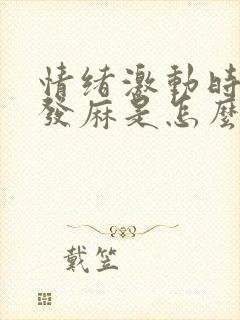 情绪激動時
發麻是怎麼
戴笠